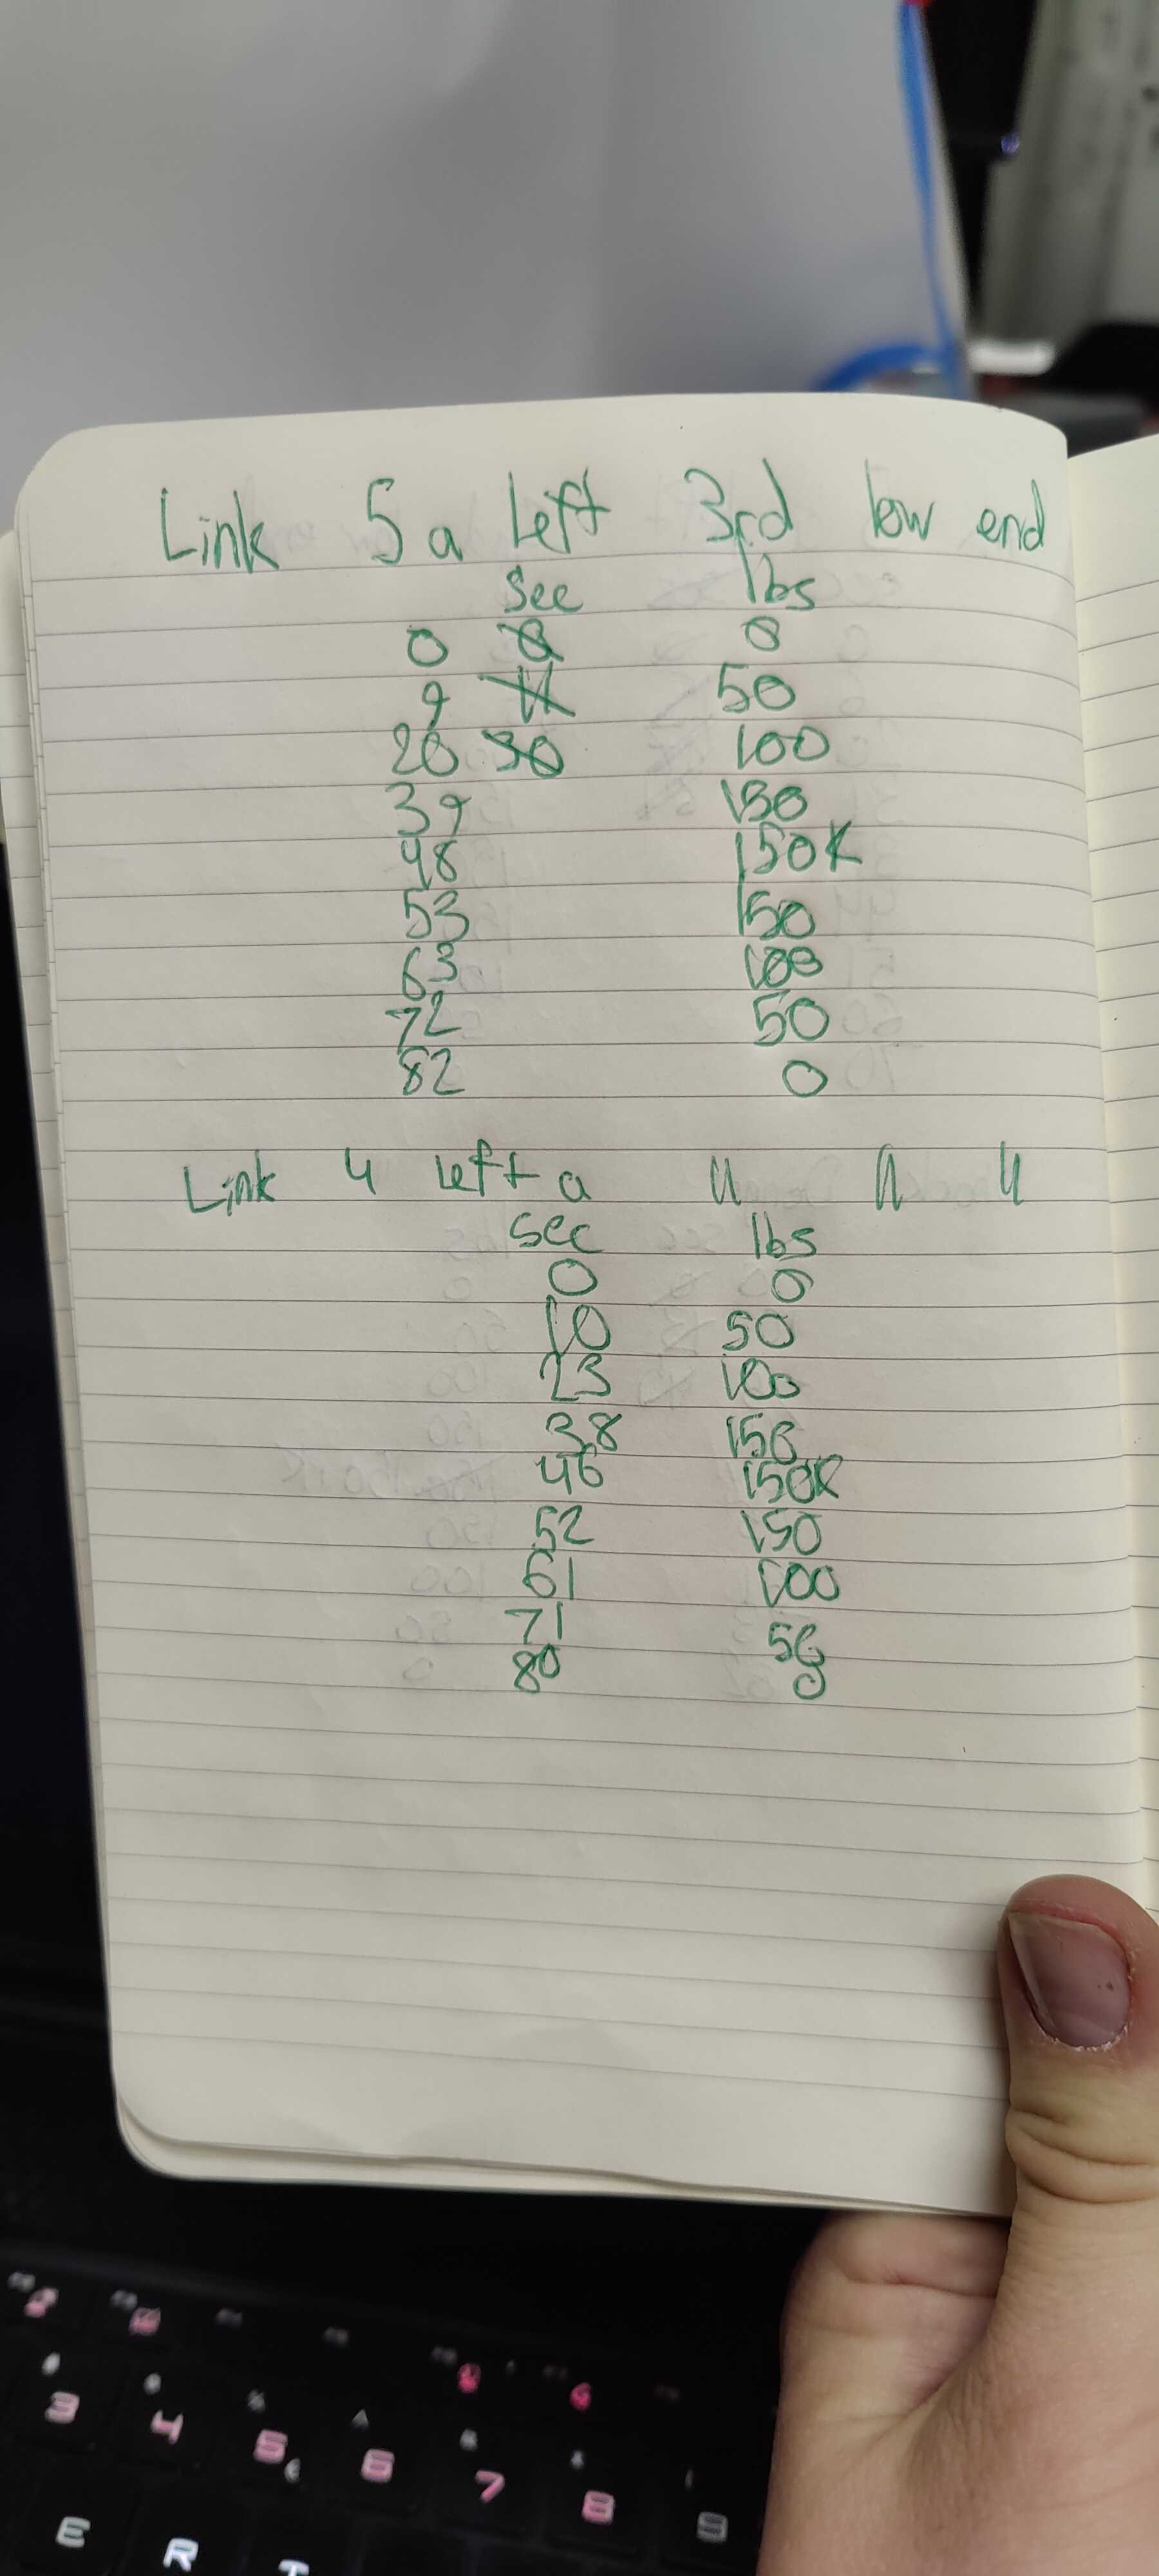 Link 5a Left 3rd low end
Sec lbs
0 0 0
9 11 50
20 30 100
39 150
48 150K
53 150
63 100
72 50
82 0
Link 4 Left a 11 11 11
Sec lbs
0 0
10 50
23 100
38 150
46 150K
52 150
61 100
71 50
80 0
3 4 5 6 7 8 9
€
E R T